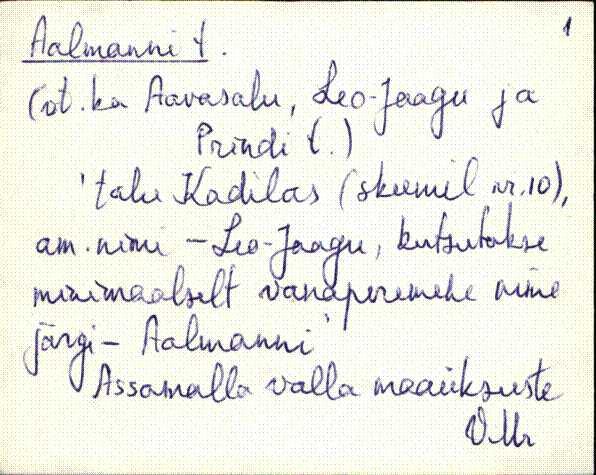 1
Aalmanni t.
(vt. ka Aavasalu, Leo-Jaagu ja
Prindi t.)
'talu Kadilas (skeemil nr. 10),
am. nimi – Leo-Jaagu, kutsutakse
minimaalselt vanaperemehe nime
järgi – Aalmanni'
Assamalla valla maaüksuste
VMr